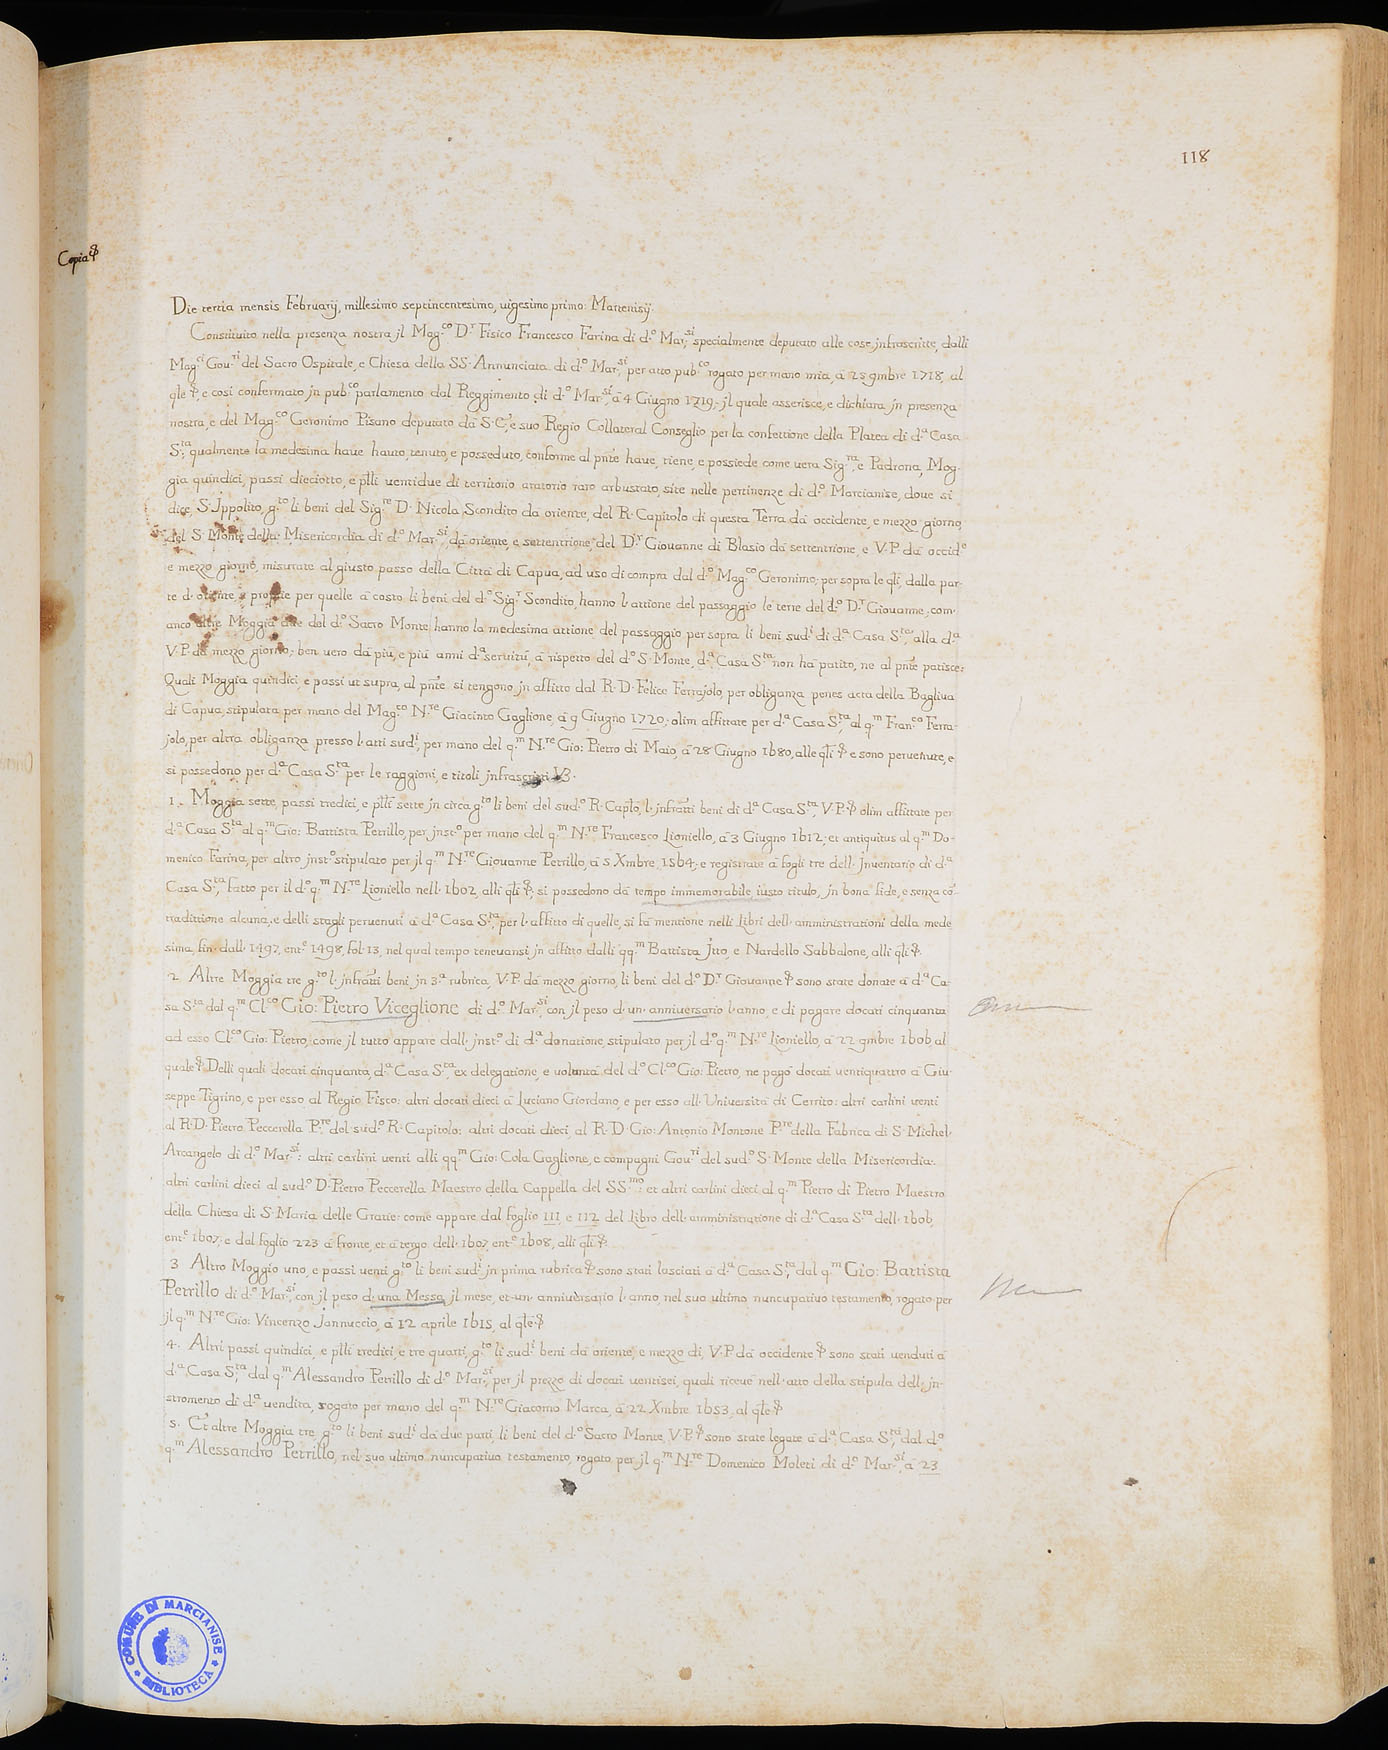 118
Copia ꝭ
Die tertia mensis Februarij, millesimo septincentesimo, uigesimo primo: Martenisij.
Constituito nella presenza nostra jl Mag.co D.r Fisico Francesco Farina di d.o Mar.si specialmente deputato alle cose jnfrascritte, dalli
Mag.ci Gou.ri del Sacro Ospitale, e Chiesa della SS. Annunciata di d.o Mar.si, per atto pub.co rogato per mano mia, à 25 9mbre 1718, al
qle ꝭ, e così confermato jn pub.co parlamento dal Reggimento di d.o Mar.si, à 4 Giugno 1719; jl quale asserisce, e dichiara jn presenza
nostra, e del Mag.co Geronimo Pisano deputato da S. C., e suo Regio Collateral Conseglio per la confettione della Platea di d.a Casa
S.ta, qualmente la medesima haue hauto, tenuto, e posseduto, conforme al pnte haue, tiene, e possiede come uera Sig.ra, e Padrona, Mog-
gia quindici, passi dieciotto, e plli uentidue di territorio aratorio raro arbustato, site nelle pertinenze di d.o Marcianise, doue si
dice, S. Jppolito, g.to li beni del Sig.re D. Nicola Scondito da oriente, del R. Capitolo di questa Terra da occidente, e mezzo giorno,
del S. Monte della Misericordia di d.o Mar.si, da oriente, e settentrione, del D.r Giouanne di Blasio da settentrione, e V. P. da occid.e
e mezzo giorno, misurate al giusto passo della Città di Capua, ad uso di compra dal d.o Mag.co Geronimo; per sopra le qli, dalla par-
te d'oriente, e proprie per quelle à costo li beni del d.o Sig.r Scondito, hanno l'attione del passaggio le terre del d.o D.r Giouanne, com'
anco altre Moggia due del d.o Sacro Monte hanno la medesima attione del passaggio per sopra li beni sud.i di d.a Casa S.ta, alla d.a
V. P. da mezzo giorno; ben uero da più, e più anni d.a seruitù, à rispetto del d.o S. Monte, d.a Casa S.ta non ha patito, ne al pnte patisce:
Quali Moggia quindici, e passi ut supra, al pnte si tengono jn affitto dal R. D. Felice Ferrajolo, per obliganza penes acta della Bagliua
di Capua, stipulata per mano del Mag.co N.re Giacinto Gaglione, à 9 Giugno 1720; olim affittate per d.a Casa S.ta al q.m Fran.co Ferra-
jolo, per altra obliganza presso l'atti sud.i, per mano del q.m N.re Gio: Pietro di Maio, à 28 Giugno 1680, alle qli ꝭ e sono peruenute, e
si possedono per d.a Casa S.ta per le raggioni, e titoli jnfrascritti V3.
1. Moggia sette, passi tredici, e plli sette jn circa g.to li beni del sud.o R. Caplo, l'infratti beni di d.a Casa S.ta, V. P. ꝭ olim affittate per
d.a Casa S.ta al q.m Gio: Battista Petrillo, per jnst.o per mano del q.m N.re Francesco Lioniello, à 3 Giugno 1612; et antiquitus al q.m Do-
menico Farina, per altro jnst.o stipulato per jl q.m N.re Giouanne Petrillo, à 5 Xmbre 1564; e registrate à fogli tre dell'Jnuentario di d.a
Casa S.ta, fatto per il d.o q.m N.re Lioniello nell'1602, alli qli ꝭ; si possedono da tempo immemorabile, iusto titulo, jn bona fide, e senza co-
tradittione alcuna; e delli stagli peruenuti à d.a Casa S.ta, per l'affitto di quelle, si fà mentione nelli Libri dell'amministrationi della mede
sima, fin dall'1497, ent.e 1498, fol. 13, nel qual tempo teneuansi jn affitto dalli qq.m Battista Jtto, e Nardello Sabbalone, alli qli ꝭ.
2 Altre Moggia tre g.to l'jnfratti beni jn 3.a rubrica, V. P. da mezzo giorno, li beni del d.o D.r Giouanne ꝭ sono state donate à d.a Ca-
sa S.ta dal q.m Cl.co Gio: Pietro Viceglione di d.o Mar.si, con jl peso d'un'anniuersario l'anno, e di pagare docati cinquanta
ad esso Cl.co Gio: Pietro, come jl tutto appare dall'jnst.o di d.a donatione, stipulato per jl d.o q.m N.re Lioniello, à 22 9mbre 1606, al
quale ꝭ. Delli quali docati cinquanta, d.a Casa S.ta, ex delegatione, e uolontà del d.o Cl.co Gio: Pietro, ne pagò docati uentiquattro à Giu-
seppe Tigrino, e per esso al Regio Fisco: altri docati dieci à Luciano Giordano, e per esso all'Università di Cerrito: altri carlini uenti
al R. D. Pietro Peccerella P.re del sud.o R. Capitolo: altri docati dieci al R. D. Gio: Antonio Montone P.re della Fabrica di S. Michel'
Arcangelo di d.o Mar.si: altri carlini uenti alli qq.m Gio: Cola Gaglione, e compagni Gou.ri del sud.o S. Monte della Misericordia:
altri carlini dieci al sud.o D. Pietro Peccerella Maestro della Cappella del SS.mo: et altri carlini dieci al q.m Pietro di Pietro Maestro
della Chiesa di S. Maria delle Gratie: come appare dal foglio 111, e 112 del Libro dell'amministratione di d.a Casa S.ta dell'1606,
ent.e 1607; e dal foglio 223 à fronte, et à tergo dell'1607, ent.e 1608, alli qli ꝭ.
3 Altro Moggio uno, e passi uenti g.to li beni sud.i jn prima rubrica ꝭ sono stati lasciati à d.a Casa S.ta, dal q.m Gio: Battista
Petrillo di d.o Mar.si, con jl peso d'una Messa jl mese, et un'anniuersario l'anno, nel suo ultimo nuncupatiuo testamento, rogato per
jl q.m N.re Gio: Vincenzo Jannuccio, à 12 aprile 1615, al qle ꝭ
4. Altri passi quindici, e plli tredici, e tre quarti, g.to li sud.i beni da oriente, e mezzo dì, V. P. da occidente ꝭ sono stati uenduti à
d.a Casa S.ta dal q.m Alessandro Petrillo di d.o Mar.si, per jl prezzo di docati uentisei, quali riceuè nell'atto della stipula dell'jn-
stromento di d.a uendita, rogato per mano del q.m N.re Giacomo Marca, à 22 Xmbre 1653, al qle ꝭ
5. Et altre Moggia tre g.to li beni sud.i da due parti, li beni del d.o Sacro Monte, V. P. ꝭ sono state legate à d.a Casa S.ta, dal d.o
q.m Alessandro Petrillo, nel suo ultimo nuncupatiuo testamento, rogato per jl q.m N.re Domenico Moleti di d.o Mar.si, à 23
COMUNE DI MARCIANISE
BIBLIOTECA